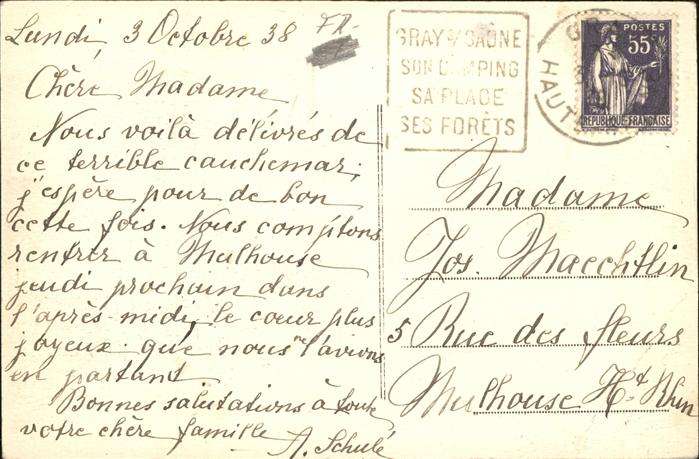 Lundi, 3 Octobre 38
FR-
Chère Madame
Nous voilà délivrés de
ce terrible cauchemar,
j'espère pour de bon
cette fois. Nous comptons
rentrer à Mulhouse
jeudi prochain dans
l'après-midi, le cœur plus
joyeux que nous ne l'avions
en partant
Bonnes salutations à toute
votre chère famille
A. Schulé
GRAY S/ SAÔNE
SON CAMPING
SA PLAGE
SES FORÊTS
HAUTE
POSTES
55c
RÉPUBLIQUE FRANÇAISE
Madame
Jos. Maechtlin
5 Rue des fleurs
Mulhouse Ht. Rhin